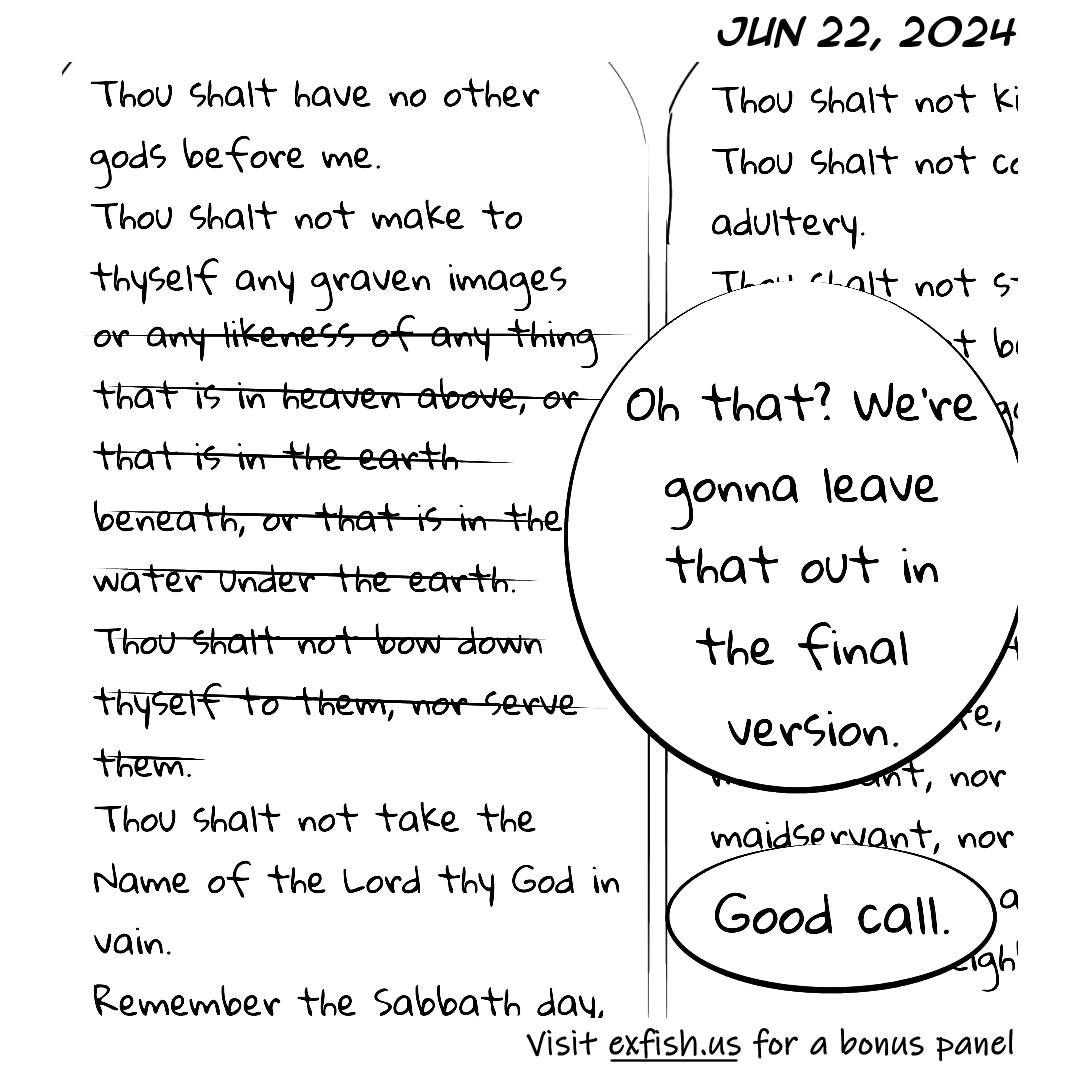 JUN 22, 2024
Thou shalt have no other
gods before me.
Thou shalt not make to
thyself any graven images
or any likeness of any thing
that is in heaven above, or
that is in the earth
beneath, or that is in the
water under the earth.
Thou shalt not bow down
thyself to them, nor serve
them.
Thou shalt not take the
Name of the Lord thy God in
vain.
Remember the Sabbath day,
Thou shalt not
Thou shalt not
adultery.
Thou shalt not
Oh that? We're
gonna leave
that out in
the final
version.
nor
maidservant, nor
Good call.
Visit exfish.us for a bonus panel